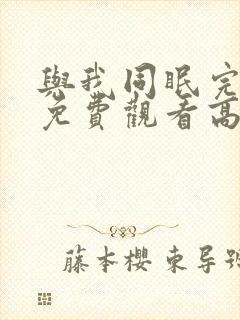 與我同眠完
免費觀看高
藤本櫻東导